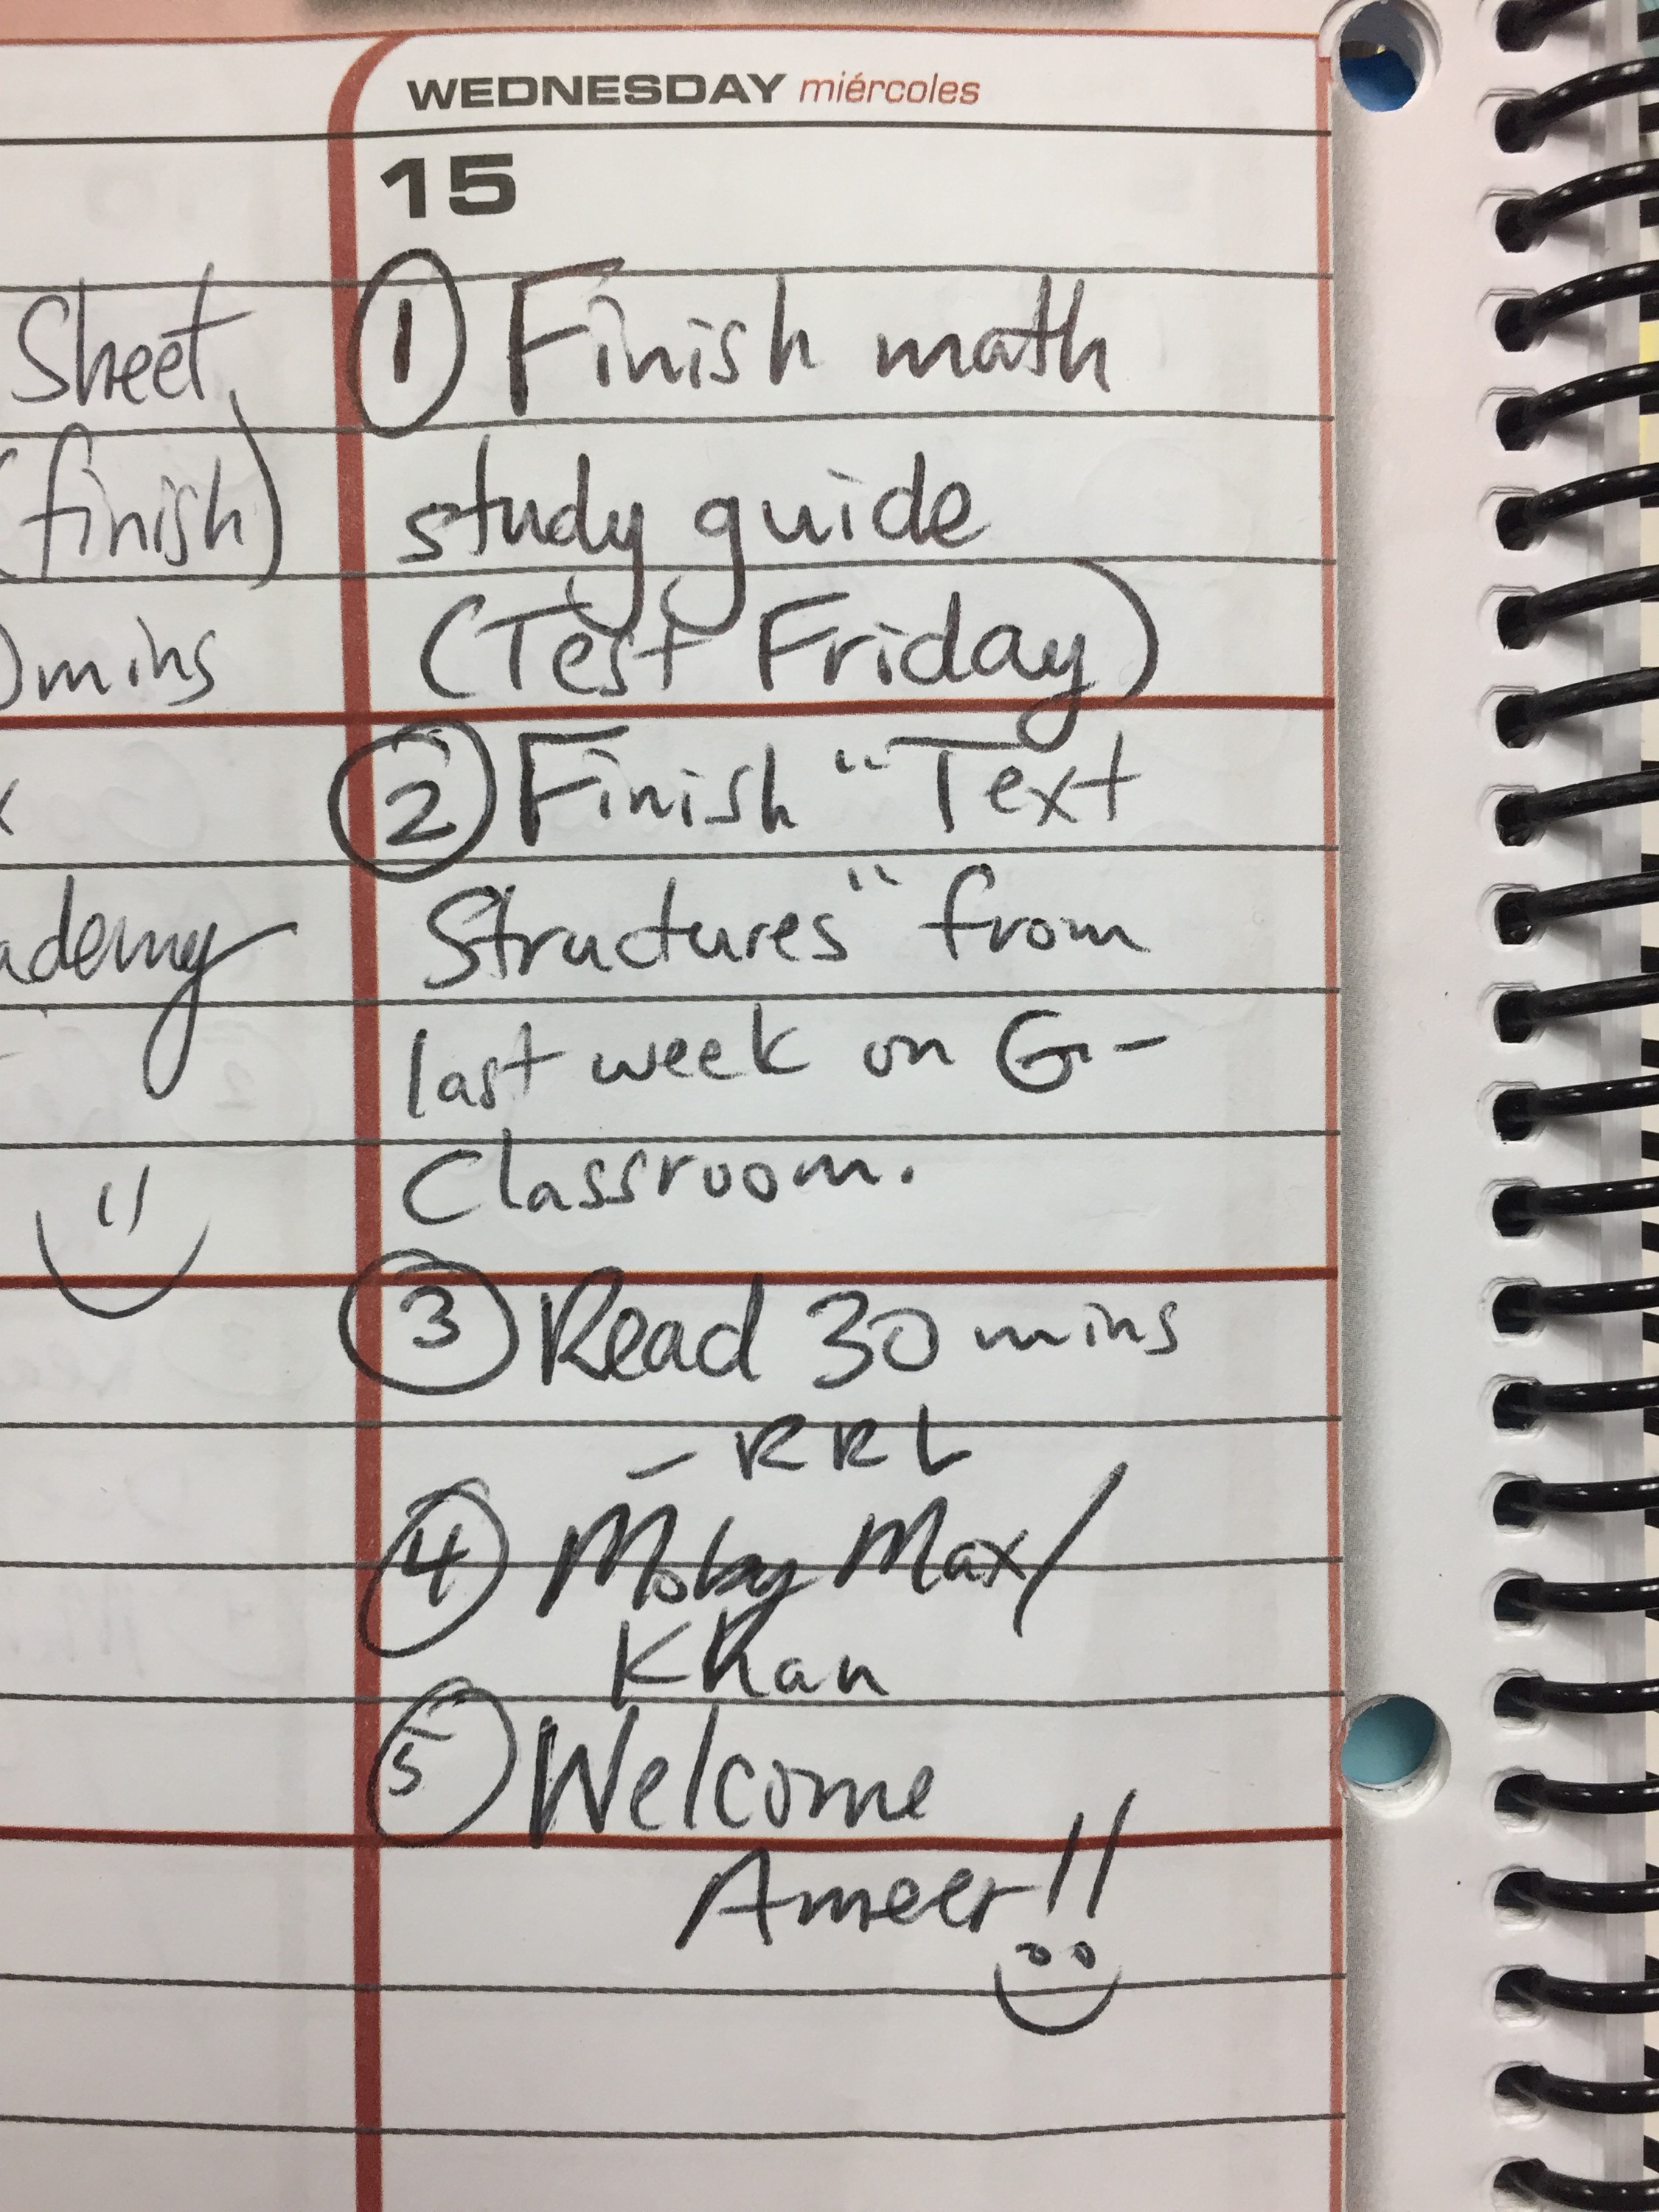 WEDNESDAY miércoles
15
Sheet
(finish)
mins
ademy
① Finish math
study guide
(Test Friday)
② Finish "Text
Structures" from
last week on G-
Classroom.
③ Read 30 mins
- RRL
④ Moby Max/
Khan
⑤ Welcome
Ameer!!